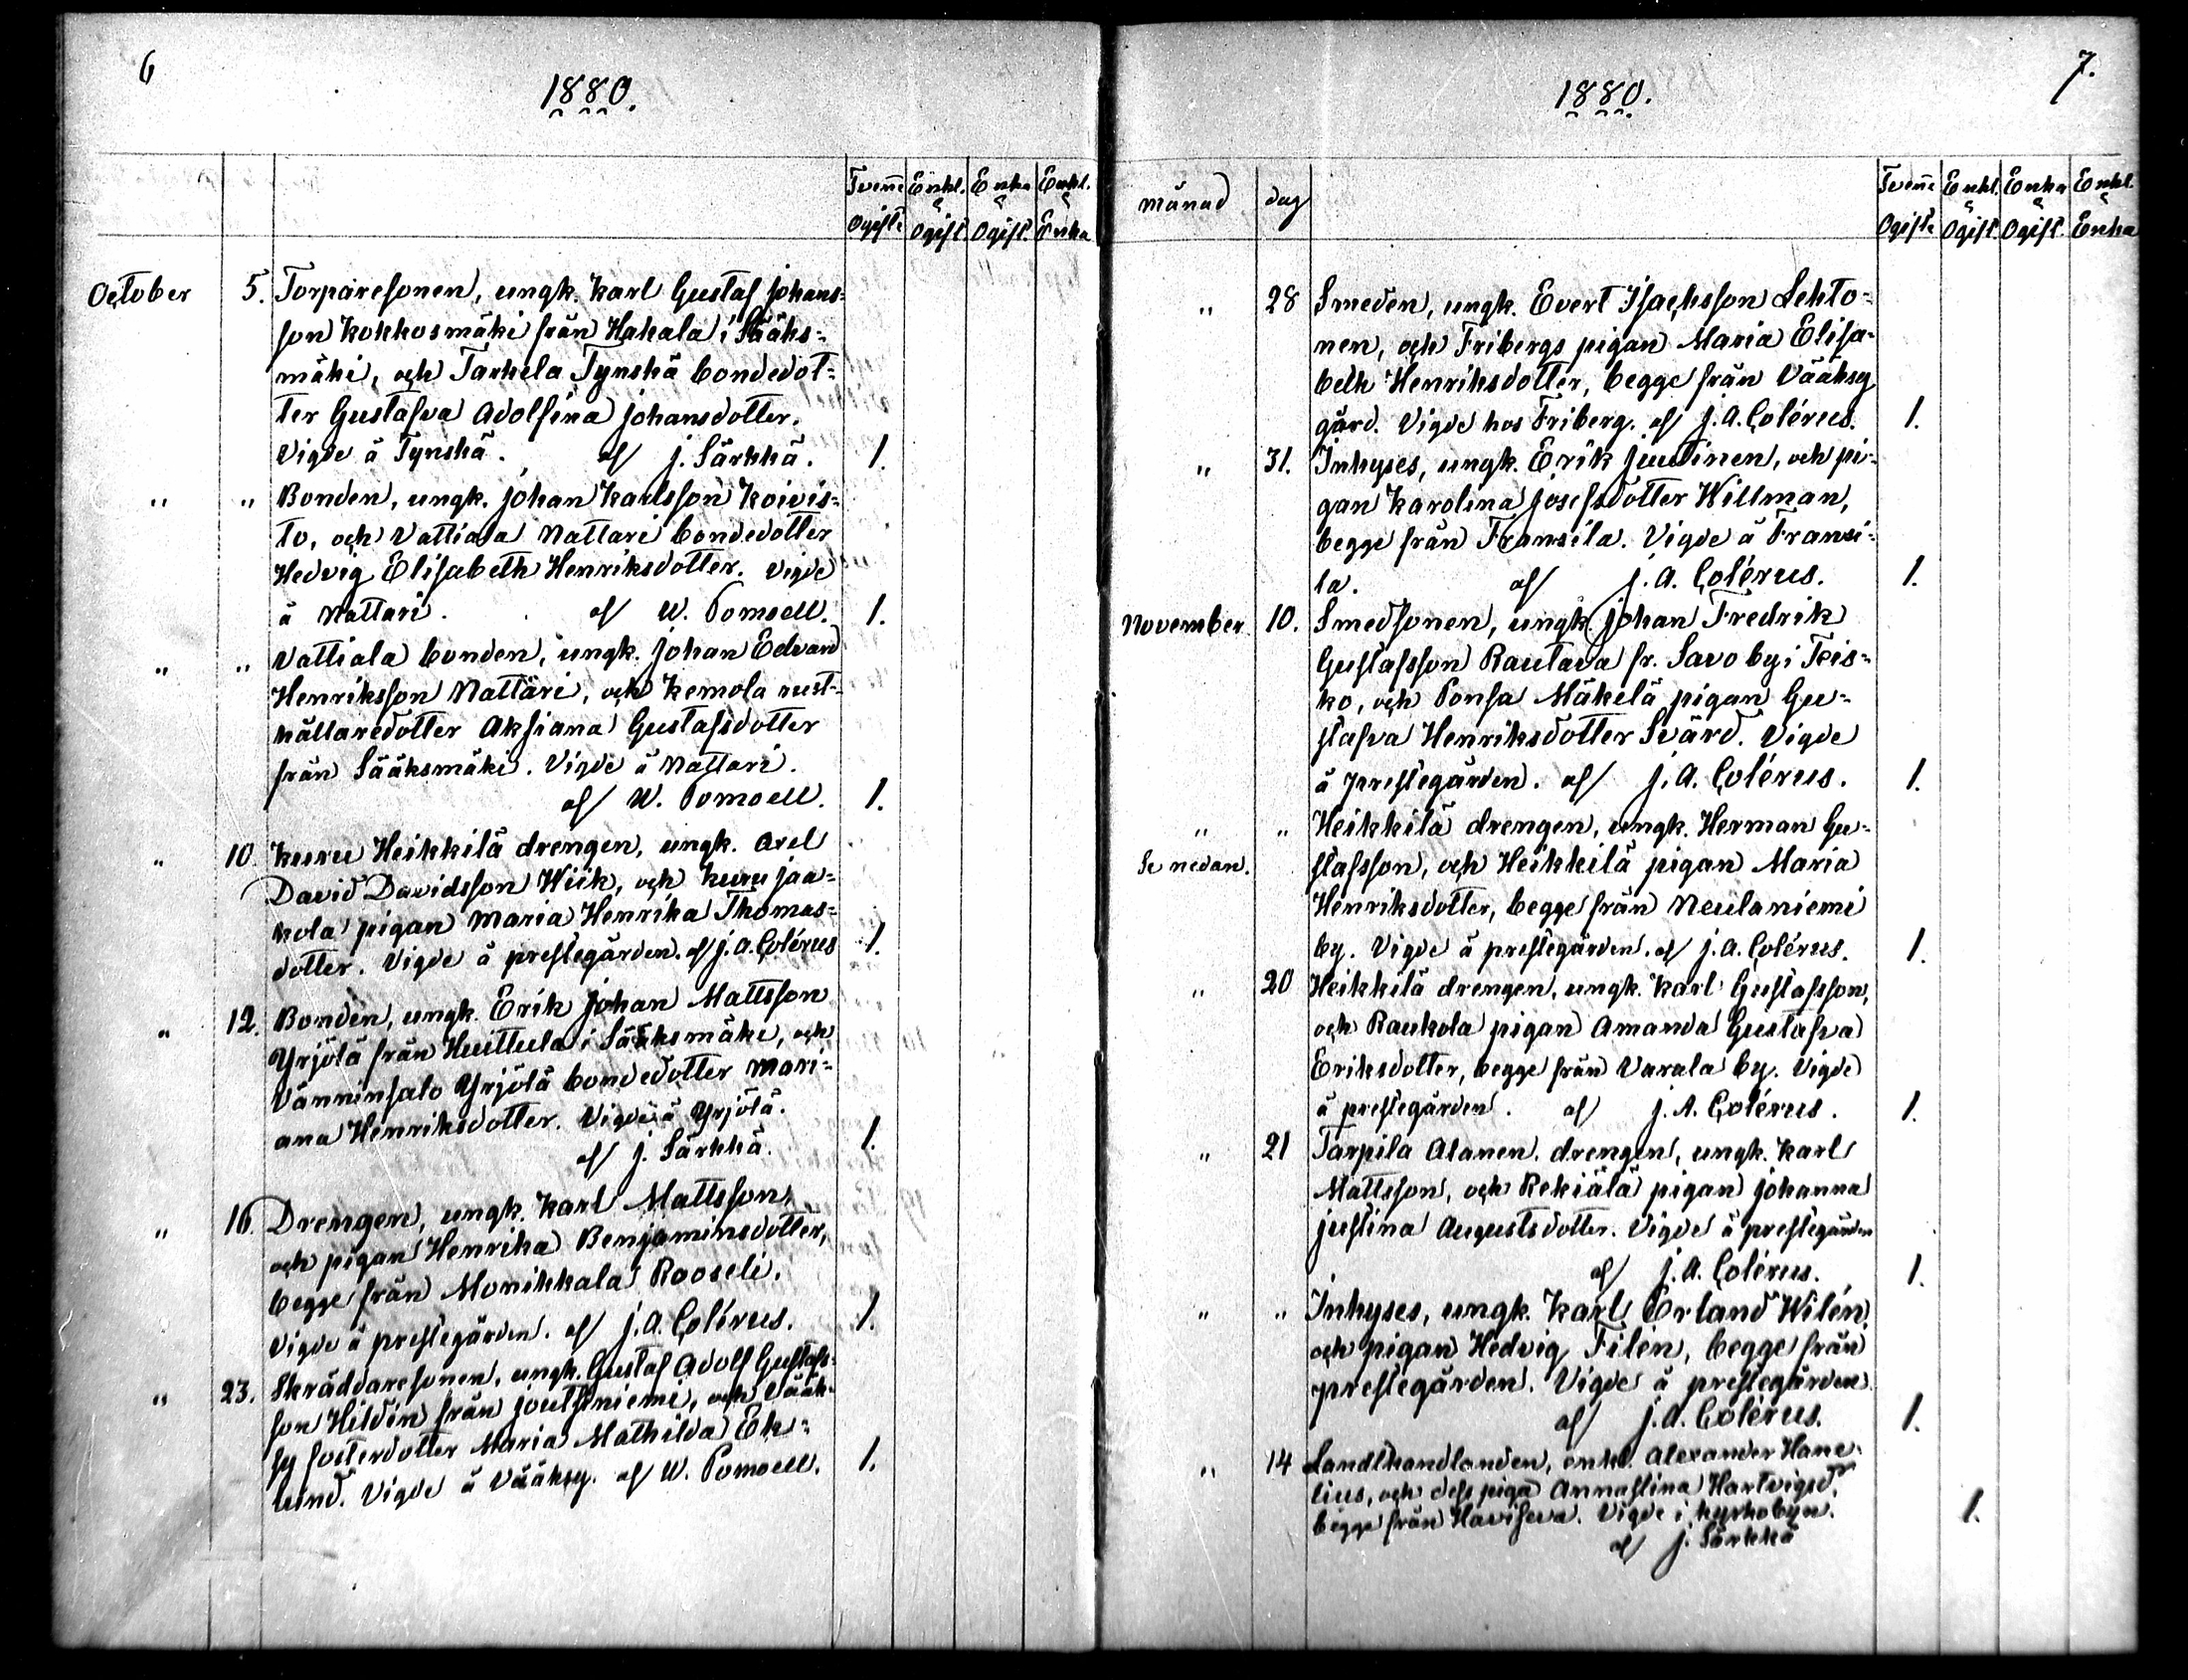 6
1880.
Tvenne Ogifte
Enkl. & Ogift.
Enka & Ogift.
Enkl. & Enka
October 5. Torparesonen, ungk. Karl Gustaf Johans=
son Kokkosmäki från Hakala i Sääks=
mäki, och Tarkela Tynskä bondedot=
ter Gustafva Adolfina Johansdotter.
Vigde å Tynskä. af J. Särkkä. 1.
" " Bonden, ungk. Johan Karlsson Koivis=
to, och Vattiala Mattari bondedotter
Hedvig Elisabeth Henriksdotter. Vigde
å Mattari. af W. Pomoell. 1.
" " Vattiala bonden, ungk. Johan Edvard
Henriksson Mattäri, och Kemola rust=
hållaredotter Aksiana Gustafsdotter
från Sääksmäki. Vigde å Mattari.
af W. Pomoell. 1.
" 10. Kuru Heikkilä drengen, ungk. Axel
David Davidsson Wiik, och Kuru Jaa=
kola pigan Maria Henrika Thomas=
dotter. Vigde å prestegården. af J. A. Colérus 1.
" 12. Bonden, ungk. Erik Johan Mattsson
Yrjölä från Huittula i Sääksmäki, och
Vänninsalo Yrjölä bondedotter Mari=
ana Henriksdotter. Vigde å Yrjölä.
af J. Särkkä. 1.
" 16. Drengen, ungk. Karl Mattsson,
och pigan Henrika Benjaminsdotter,
begge från Monikkala Rooseli.
Vigde å prestegården. af J. A. Colérus. 1.
" 23. Skräddaresonen, ungk. Gustaf Adolf Gustafs=
son Hildin från Joutsiniemi, och Vääk=
sy fosterdotter Maria Mathilda Ek=
lund. Vigde å Vääksy. af W. Pomoell. 1.
7.
1880.
månad dag
Tvenne Ogifte
Enkl. & Ogift.
Enka & Ogift.
Enkl. & Enka
" 28 Smeden, ungk. Evert Isachsson Lehto=
nen, och Fribergs pigan Maria Elisa=
beth Henriksdotter, begge från Vääksy
gård. Vigde hos Friberg. af J. A. Colérus. 1.
" 31. Inhyses, ungk. Erik Juutinen, och pi=
gan Karolina Josefsdotter Willman,
begge från Fransila. Vigde å Fransi=
la. af J. A. Colérus. 1.
November 10. Smedsonen, ungk. Johan Fredrik
Gustafsson Rautava fr. Savo by i Teis=
ko, och Ponsa Mäkelä pigan Gu=
stafva Henriksdotter Svärd. Vigde
å prestegården. af J. A. Colérus. 1.
" " Heikkilä drengen, ungk. Herman Gu=
Se nedan. stafsson, och Heikkilä pigan Maria
Henriksdotter, begge från Neulaniemi
by. Vigde å prestegården. af J. A. Colérus. 1.
" 20 Heikkilä drengen, ungk. Karl Gustafsson,
och Raukola pigan Amanda Gustafva
Eriksdotter, begge från Varala by. Vigde
å prestegården. af J. A. Colérus. 1.
" 21 Tarpila Alanen drengen, ungk. Karl
Mattsson, och Rekiälä pigan Johanna
Justina Augustsdotter. Vigde å prestegården
af J. A. Colérus. 1.
" " Inhyses, ungk. Karl Erland Wilén,
och pigan Hedvig Filén, begge från
prestegården. Vigde å prestegården
af J. A. Colérus. 1.
" 14 Landthandlanden, enkl. Alexander Hane=
lius, och dess piga Annastina Hartvigsd.
begge från Havisева. Vigde i kyrkobyn.
af J. Särkkä 1.